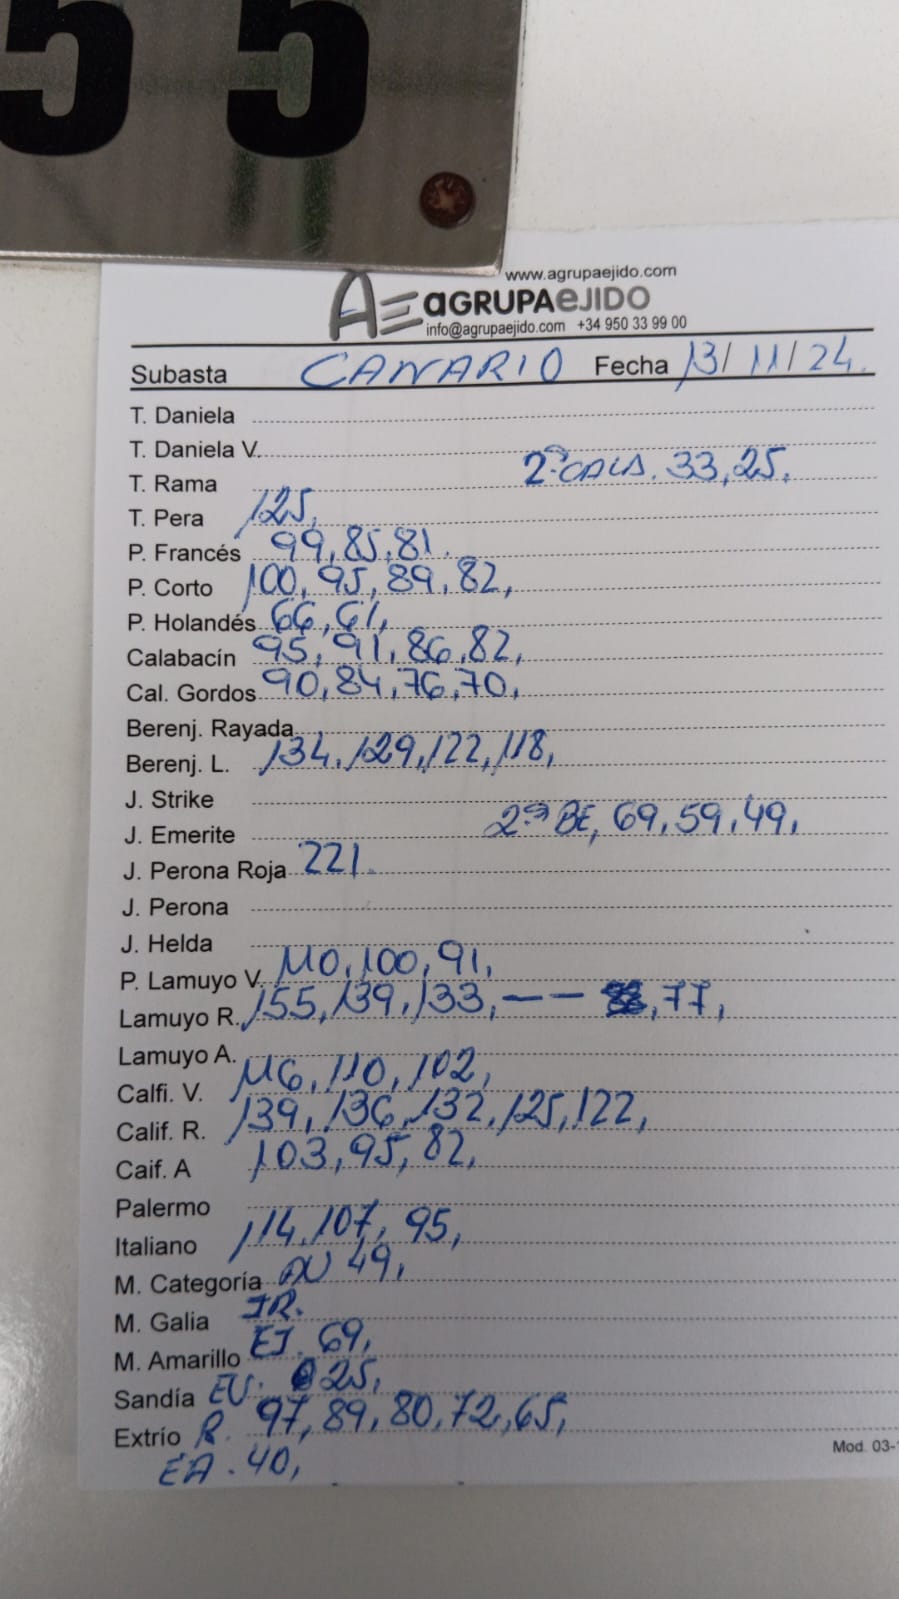 55
www.agrupaejido.com
AE aGRUPAeJIDO
info@agrupaejido.com +34 950 33 99 00
Subasta CANARIO Fecha 13/11/24.
T. Daniela
T. Daniela V.
T. Rama 2ª CALA. 33,25.
T. Pera 125.
P. Francés 99,85,81.
P. Corto 100,95,89,82,
P. Holandés 66,61,
Calabacín 95,91,86,82,
Cal. Gordos 90,84,76,70,
Berenj. Rayada
Berenj. L. 134,129,122,118,
J. Strike
J. Emerite 2ª BE, 69,59,49,
J. Perona Roja 221.
J. Perona
J. Helda
P. Lamuyo V. 110,100,91,
Lamuyo R. 155,139,133,— — ,77,
Lamuyo A.
Calfi. V. 116,110,102,
Calif. R. 139,136,132,125,122,
Caif. A 103,95,82,
Palermo
Italiano 114,107,95,
M. Categoría AU 49,
M. Galia IR.
M. Amarillo EJ. 69,
Sandía EV. 25,
Extrío R. 97,89,80,72,65,
EA. 40,
Mod. 03-